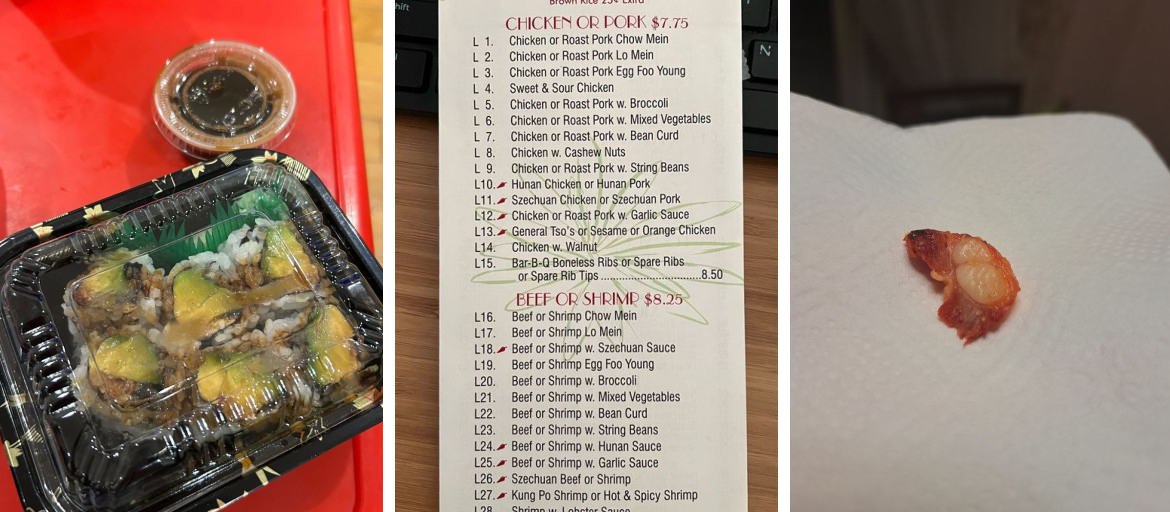 Brown Rice 25¢ Extra
CHICKEN OR PORK $7.75
L 1. Chicken or Roast Pork Chow Mein
L 2. Chicken or Roast Pork Lo Mein
L 3. Chicken or Roast Pork Egg Foo Young
L 4. Sweet & Sour Chicken
L 5. Chicken or Roast Pork w. Broccoli
L 6. Chicken or Roast Pork w. Mixed Vegetables
L 7. Chicken or Roast Pork w. Bean Curd
L 8. Chicken w. Cashew Nuts
L 9. Chicken or Roast Pork w. String Beans
L10. Hunan Chicken or Hunan Pork
L11. Szechuan Chicken or Szechuan Pork
L12. Chicken or Roast Pork w. Garlic Sauce
L13. General Tso's or Sesame or Orange Chicken
L14. Chicken w. Walnut
L15. Bar-B-Q Boneless Ribs or Spare Ribs
or Spare Rib Tips ..............................8.50
BEEF OR SHRIMP $8.25
L16. Beef or Shrimp Chow Mein
L17. Beef or Shrimp Lo Mein
L18. Beef or Shrimp w. Szechuan Sauce
L19. Beef or Shrimp Egg Foo Young
L20. Beef or Shrimp w. Broccoli
L21. Beef or Shrimp w. Mixed Vegetables
L22. Beef or Shrimp w. Bean Curd
L23. Beef or Shrimp w. String Beans
L24. Beef or Shrimp w. Hunan Sauce
L25. Beef or Shrimp w. Garlic Sauce
L26. Szechuan Beef or Shrimp
L27. Kung Po Shrimp or Hot & Spicy Shrimp
L28. Shrimp w. Lobster Sauce
N